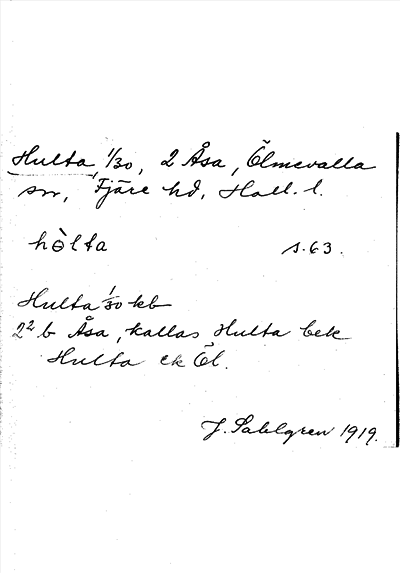 Hulta 1/30, 2 Åsa, Ölmevalla
sn, Fjäre hd, Hall. l.
hòlta s. 63.
Hulta 1/30 kb
2² b Åsa, kallas Hulta bek
Hulta ek Öl.
J. Sahlgren 1919.